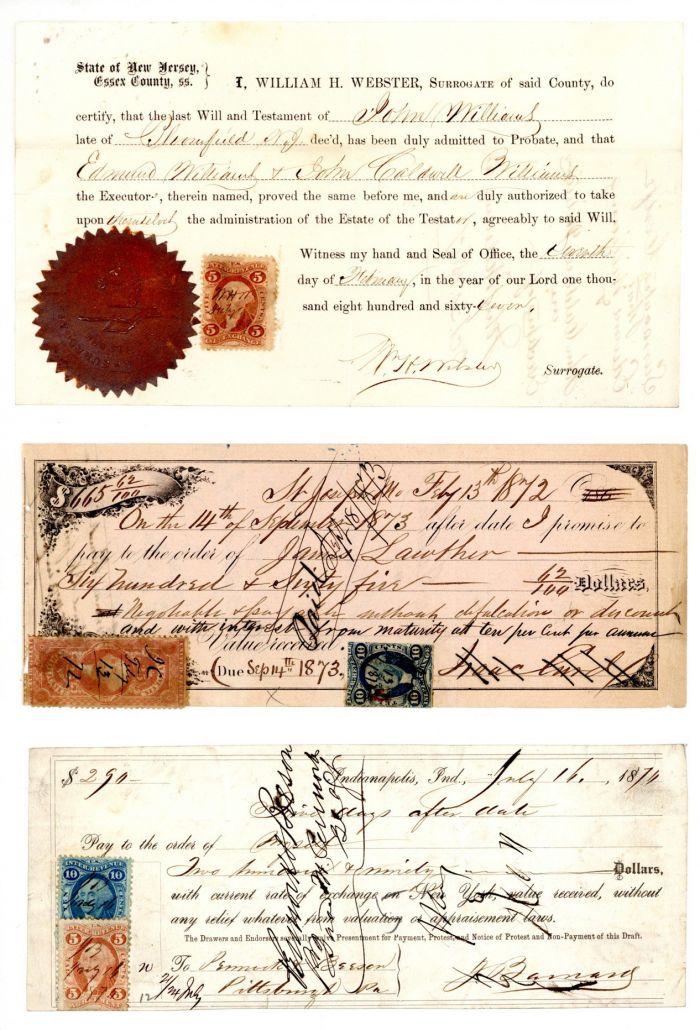 State of New Jersey,
Essex County, ss.
I, WILLIAM H. WEBSTER, SURROGATE of said County, do
certify, that the last Will and Testament of John Williams
late of Bloomfield N.J. dec'd, has been duly admitted to Probate, and that
Edmund Williams & John Caldwell Williams
the Executors, therein named, proved the same before me, and are duly authorized to take
upon themselves the administration of the Estate of the Testator, agreeably to said Will.
Witness my hand and Seal of Office, the Seventh
day of February, in the year of our Lord one thou-
sand eight hundred and sixty-seven.
Wm H. Webster Surrogate.
5 INTER. REVENUE 5
5 5
$665 62/100
St Joseph Mo Feby 13th 1872
On the 14th of September 1873 after date I promise to
pay to the order of James Lawther
Six hundred & sixty five 62/100 Dollars,
Negotiable & payable without defalcation or discount
and with interest from maturity at ten per cent per annum
Value received
Due Sep 14th 1873.
Paid
10 CENTS 10
10 10
$290 Indianapolis, Ind., July 16, 1870
days after date
Pay to the order of
Two hundred & ninety Dollars,
with current rate of exchange on New York, value received, without
any relief whatever from valuation or appraisement laws.
The Drawers and Endorsers severally waive Presentment for Payment, Protest, and Notice of Protest and Non-Payment of this Draft.
To Pennock & Beeson
Pittsburgh Pa
Barnard
INTER. REVENUE
10 10
5 5
5 5